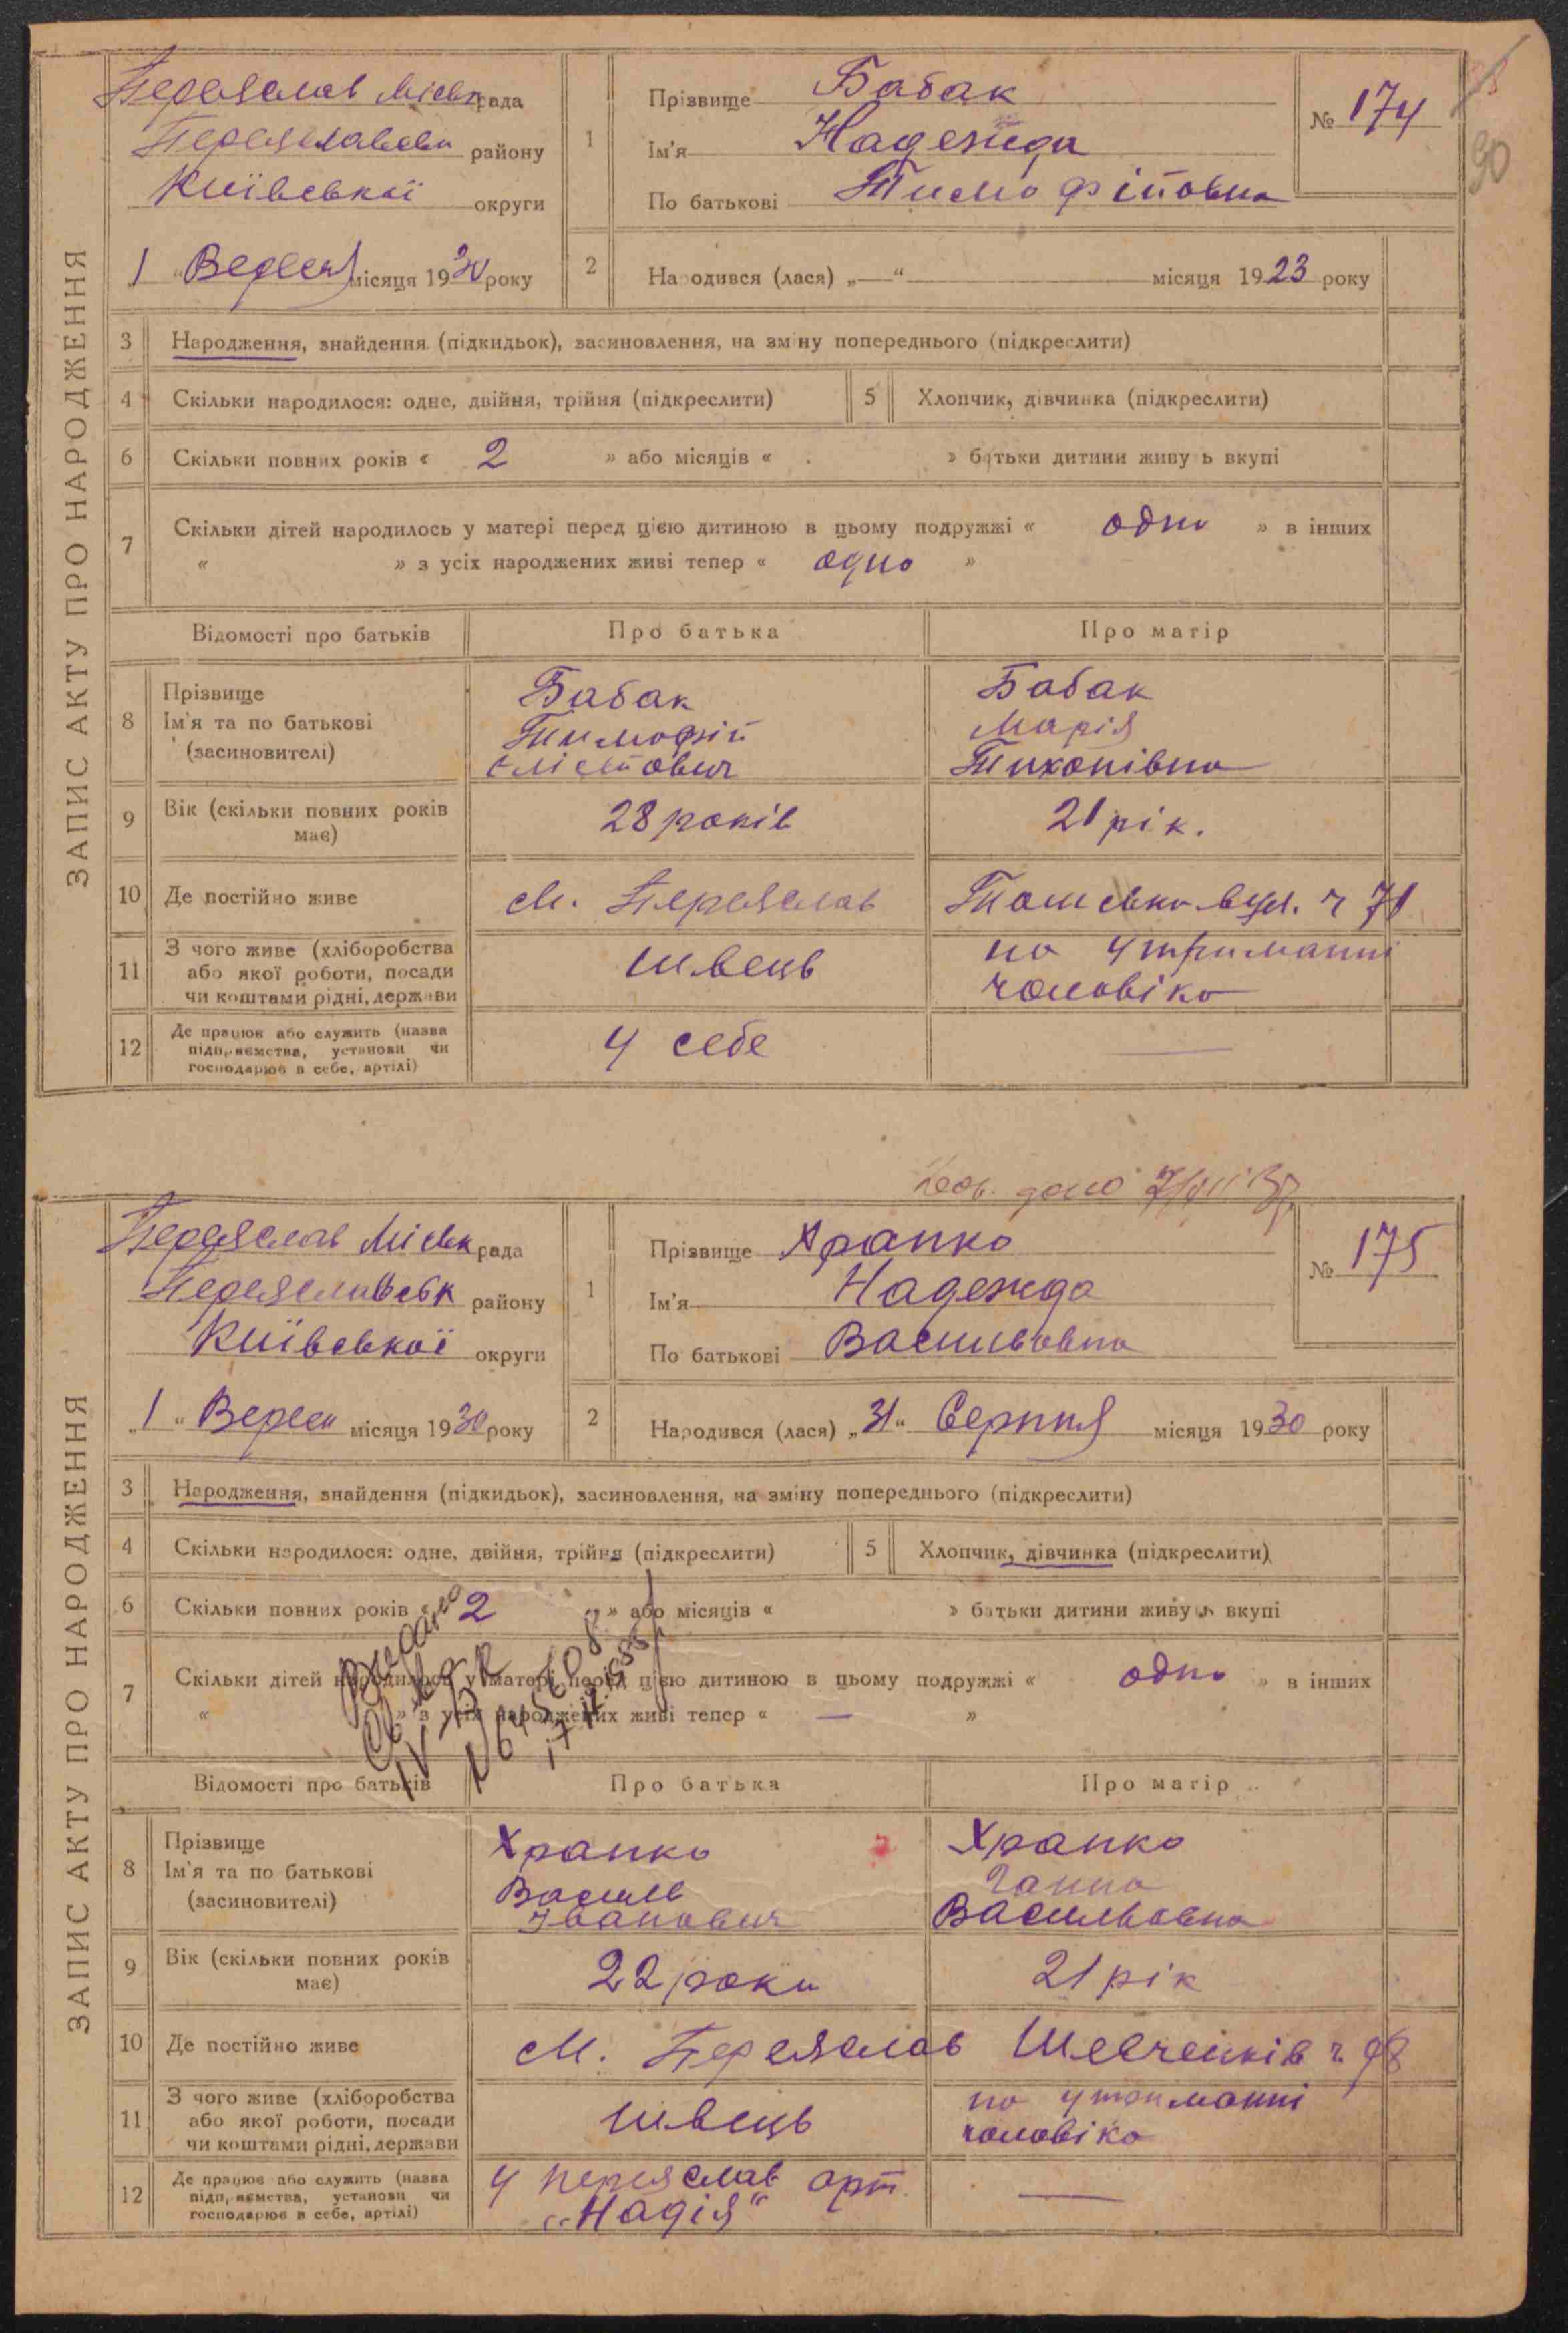 90
ЗАПИС АКТУ ПРО НАРОДЖЕННЯ
Переяслав Міськрада
Переяславськ району
Київської округи
1 " Вересня місяця 1930 року
1 Прізвище Бабак
Ім'я Надежда
По батькові Тимофіївна
№ 174
2 Народився (лася) „—“ місяця 1923 року
3 Народження, знайдення (підкидьок), засиновлення, на зміну попереднього (підкреслити)
4 Скільки народилося: одне, двійня, трійня (підкреслити) 5 Хлопчик, дівчинка (підкреслити)
6 Скільки повних років « 2 » або місяців « » батьки дитини живуть вкупі
7 Скільки дітей народилось у матері перед цією дитиною в цьому подружжі « одно » в інших
« » з усіх народжених живі тепер « одно »
Відомості про батьків Про батька Про матір
8 Прізвище Ім'я та по батькові (засиновителі)
Бабак Тимофій
Бабак Марія Тихонівна
9 Вік (скільки повних років має) 28 років 21 рік.
10 Де постійно живе м. Переяслав вул. ч 71
11 З чого живе (хліборобства або якої роботи, посади чи коштами рідні, держави швець на утриманні чоловіка
12 Де працює або служить (назва підприємства, установи чи господарює в себе, артілі) у себе —
дано
ЗАПИС АКТУ ПРО НАРОДЖЕННЯ
Переяслав Міськрада
Переяславськ району
Київської округи
„1 " Вересн місяця 1930 року
1 Прізвище Храпко
Ім'я Надежда
По батькові Васильовна
№ 175
2 Народився (лася) „31“ Серпня місяця 1930 року
3 Народження, знайдення (підкидьок), засиновлення, на зміну попереднього (підкреслити)
4 Скільки народилося: одне, двійня, трійня (підкреслити) 5 Хлопчик, дівчинка (підкреслити)
6 Скільки повних років « 2 » або місяців « » батьки дитини живуть вкупі
7 Скільки дітей народилось у матері перед цією дитиною в цьому подружжі « одно » в інших
« » з усіх народжених живі тепер « — »
Відомості про батьків Про батька Про матір
8 Прізвище Ім'я та по батькові (засиновителі)
Храпко Василь Іванович
Храпко Ганна Васильовна
9 Вік (скільки повних років має) 22 роки 21 рік
10 Де постійно живе м. Переяслав Шевченків ч. 98
11 З чого живе (хліборобства або якої роботи, посади чи коштами рідні, держави швець на утриманні чоловіка
12 Де працює або служить (назва підприємства, установи чи господарює в себе, артілі) у переяслав арт. „Надія“ —